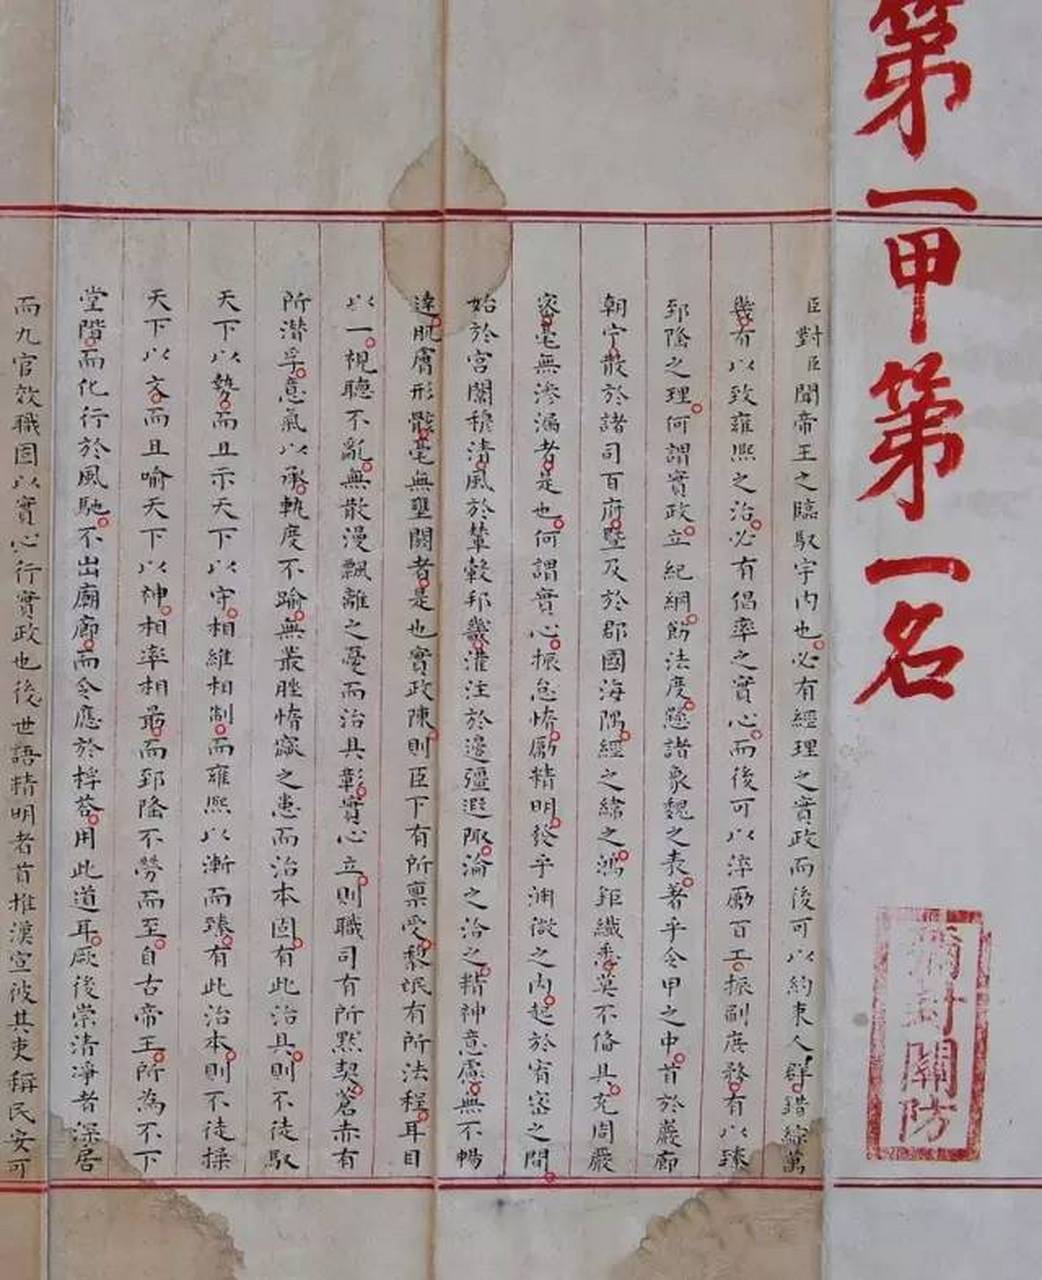 第一甲第一名
彌封關防
臣對臣聞帝王之臨馭宇內也必有經理之實政而後可以約束人群錯綜萬
幾有以致雍熙之治必有倡率之實心而後可以淬勵百工振刷庶務有以臻
郅隆之理何謂實政立紀綱飭法度懸諸象魏之表著乎令甲之中首於巖廊
朝宁散於諸司百府暨及於郡國海隅經之緯之鴻鉅纖悉莫不備具充周嚴
密毫無滲漏者是也何謂實心振怠惰勵精明發乎淵微之內起於宥密之間
始於宮闈穆清風於輦轂邦畿灌注於邊疆遐陬淪之洽之精神意慮無不暢
達肌膚形骸毫無壅閼者是也實政陳則臣下有所稟受黎氓有所法程耳目
以一視聽不亂無散漫飄離之憂而治具彰實心立則職司有所默契蒼赤有
所潛孚意氣以承軌度不踰無叢脞惰窳之患而治本固有此治具則不徒馭
天下以勢而且示天下以守相維相制而雍熙以漸而臻有此治本則不徒操
天下以文而且喻天下以神相率相最而郅隆不勞而至自古帝王所為不下
堂階而化行於風馳不出廟廊而令應於桴荅用此道耳厥後崇清凈者深居
而九官效職固以實心行實政也後世語精明者首推漢宣彼其吏稱民安可